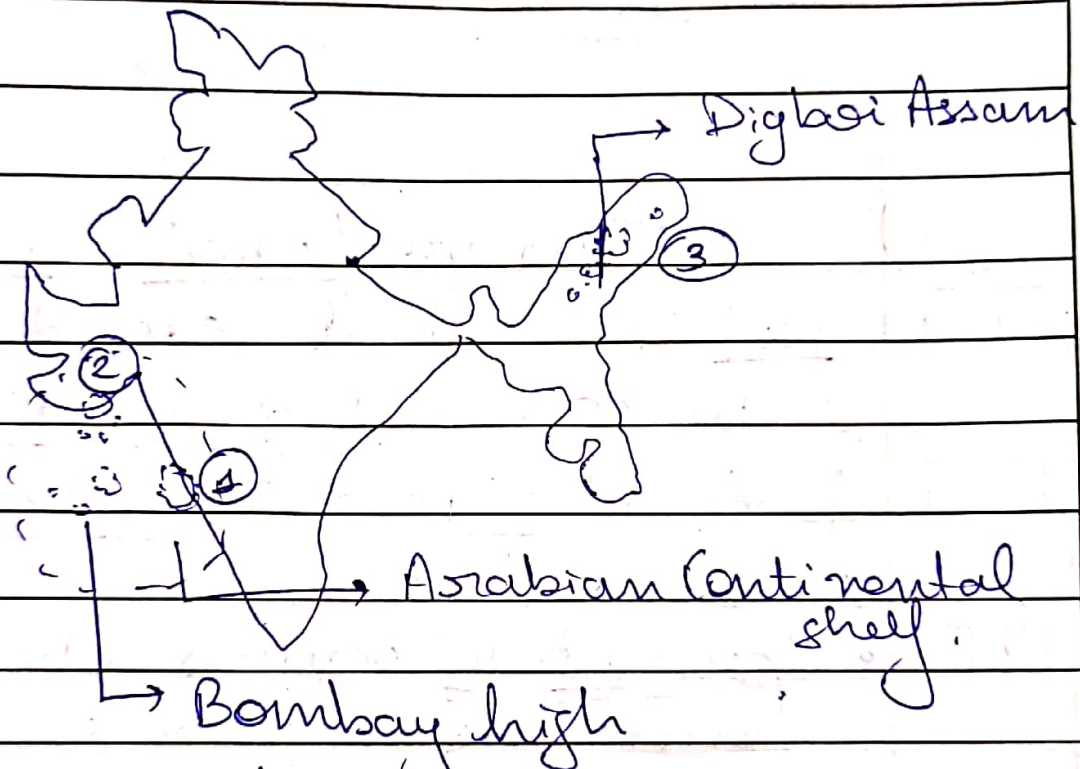 Digboi Assam
3
2
1
Arabian Continental
shelf.
Bombay high